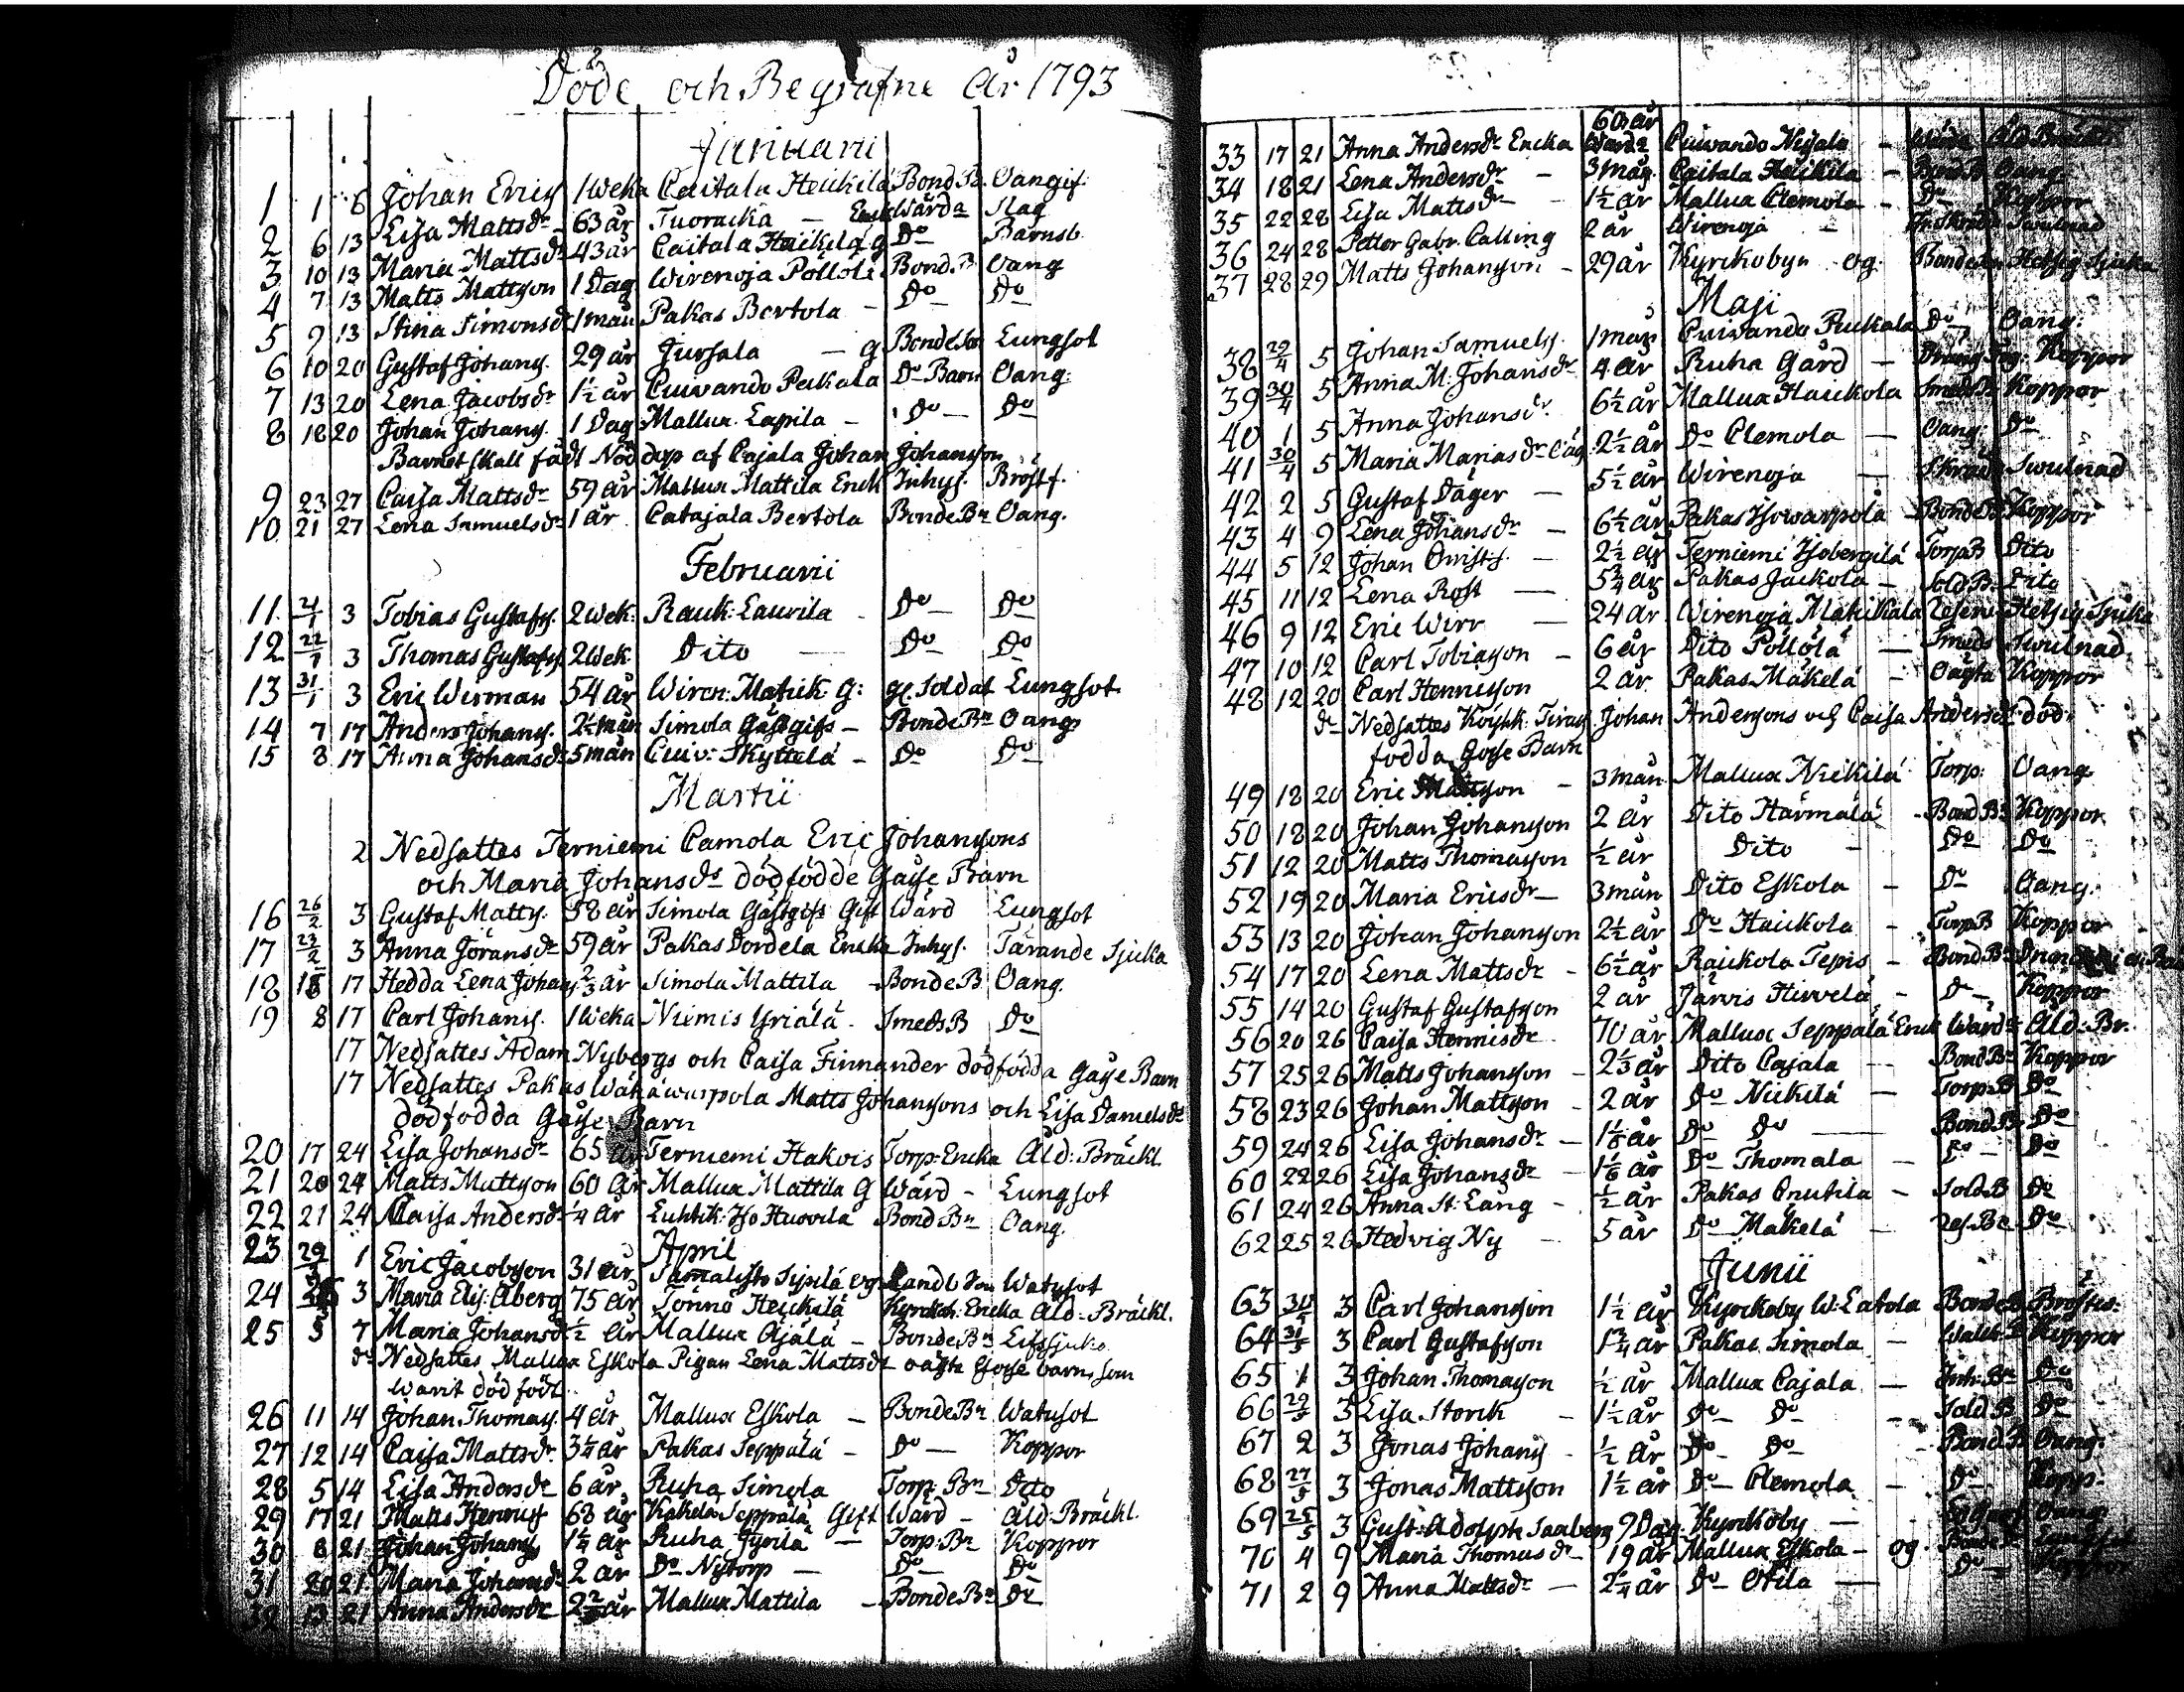 Döde och Begrafne År 1793
Januarii
1 1 6 Johan Ericss 1 Weka Caitala Heickilä Bond Bn. Oangif.
2 6 13 Lisa Mattsdr 63 år Tuoracka Enck Wärda Slag
3 10 13 Maria Mattsdr 43 år Caitala Haickilä g Do Barnsb.
4 7 13 Matts Mattsson 1 Dag Wirenoja Pöllölä Bond. B. Oang
5 9 13 Stina Simonsdr 1 mån Pakas Bertola Do Do
6 10 20 Gustaf Johanss. 29 år Jursala g Bonde Son Lungsot
7 13 20 Lena Jacobsdr 1½ år Cuivando Peckala Do Barn Oang:
8 18 20 Johan Johanss. 1 Dag Mallux Lapila Do Do
Barnet skall fådt Nöddop af Cajala Johan Johansson
9 23 27 Caisa Mattsdr 59 år Mallux Mattila Enck Inhys. Bröstf.
10 21 27 Lena Samuelsdr 1 år Catajala Bertola Bonde Bn Oang.
Februarii
11 21/1 3 Tobias Gustafss. 2 Wek. Rauk. Laurila Do Do
12 22/1 3 Thomas Gustafss 2 Wek. Dito Do Do
13 31/1 3 Eric Wirman 54 år Wiren: Matick. G: gl. Soldat Lungsot
14 7 17 Anders Johanss. 2½ mån Simola Gästgifs Bonde Bn Oang
15 8 17 Anna Johansdr 5 mån Cuiv: Skyttelä Do Do
Martii
2 Nedsattes Terniemi Camola Eric Johanssons
och Maria Johansdrs dödfödde Gosse Barn
16 26/2 3 Gustaf Matts. 58 år Simola Gästgifs Gift Wärd Lungsot
17 23/2 3 Anna Jöransdr 59 år Pakas Dordela Encka Inhys. Tärande Sjuka
18 15 17 Hedda Lena Johans 2/3 år Simola Mattila Bonde B. Oang.
19 8 17 Carl Johanss. 1 Weka Niemis Yriälä Smeds B Do
17 Nedsattes Adam Nybergs och Caisa Finnander dödfödda Gosse Barn
17 Nedsattes Pakas Wähäwarpola Matts Johanssons och Lisa Danielsdrs
dödfödda Gosse Barn
20 17 24 Lisa Johansdr 65 år Terniemi Hakois Torp: Encka Åld: Bräckl.
21 20 24 Matts Mattsson 60 år Mallux Mattila G Wärd Lungsot
22 21 24 Caisa Andersdr ¼ år Luhtik: Iso Huovila Bond Bn Oang.
April
23 29/3 1 Eric Jacobsson 31 år Sipilä og Landb Son Watusot
24 3 Maria Elis. Åberg 75 år Tönnö Heickilä Encka Åld: Bräckl.
25 3 7 Maria Johansdr ½ år Mallux Äjälä Bonde Bn
do Nedsattes Mallux Eskola Pigan Lena Mattsdrs oägta Gosse barn, som
warit dödfödt.
26 11 14 Johan Thomass. 4 år Mallux Eskola Bonde Bn Watusot
27 12 14 Caisa Mattsdr 3¼ år Pakas Seppälä Do Koppor
28 5 14 Lisa Andersdr 6 år Ruha Simola Torp. Bn Dito
29 17 21 Matts Henricss 68 år Kakela Seppälä Gift Wärd Åld: Bräckl.
30 8 21 Johan Johans 1¼ år Ruha Jyrilä Torp. Bn Koppor
31 20 21 Maria Johansdr 2 år Do Nytorp Do Do
32 13 21 Anna Andersdr 2 år Mallux Mattila Bonde Bn Do
33 17 21 Anna Andersdr Encka 60 år Cuivando Wärda Åld. Bräckl.
34 18 21 Lena Andersdr 3 mån. Caitala Heikila Bond B Oang.
35 22 28 Lisa Mattsdr 1½ år Mallux Clemola Do Koppor
36 24 28 Petter Gabr. Calling 2 år Wirenoja Swulnad
37 28 29 Matts Johansson 29 år Kyrckobyn og. Bonde Son Hetsig Sjuka
Maji
38 29/4 5 Johan Samuelss. 1 mån Cuivando Do Oang:
39 30/4 5 Anna M. Johansdr 4 år Ruha Gård Koppor
40 1 5 Anna Johansdr 6½ år Mallux Haickola Smeds B Koppor
41 30/4 5 Maria Mariasdr Oäg. 2½ år Do Clemola Oäng Do
42 2 5 Gustaf Däger 5½ år Wirenoja Skräd Swulnad
43 4 9 Lena Johansdr 6½ år Pakas Isowarpola Bonde B Koppor
44 5 12 Johan 2½ år Terniemi Isobergilä Torp B Dito
45 11 12 Lena Rost 5¾ år Pakas Jackola Sold. B. Dito
46 9 12 Eric Wirr 24 år Wirenoja Matickala Reserv Hetsig Sjuka
47 10 12 Carl Tobiasson 6 år Dito Pöllölä Smeds Swulnad.
48 12 20 Carl Hennisson 2 år Pakas Mäkelä Oägta Koppor
do Nedsattes Johan Anderssons och Caisa Andersdrs död
födda Gosse Barn
49 18 20 Eric Mattsson 3 mån Mallux Nickilä Torp: Oang
50 18 20 Johan Johansson 2 år Dito Härmälä Bond Bn Koppor
51 12 20 Matts Thomasson ½ år Dito Do Do
52 19 20 Maria Ericsdr 3 mån Dito Eskola Do Oang.
53 13 20 Johan Johansson 2½ år Do Haickola Torp B Koppor
54 17 20 Lena Mattsdr 6½ år Raickola Tepis Bond Bn
55 14 20 Gustaf Gustafsson 2 år Järvis Hirvelä Do Koppor
56 20 26 Caisa Hennisdr 70 år Mallux Seppälä Enck Wärda Åld: Br.
57 25 26 Matts Johansson 2⅓ år Dito Cajala Bond Bn Koppor
58 23 26 Johan Mattsson 2 år Do Nickilä Torp. B Do
59 24 26 Lisa Johansdr 1⅙ år Do Do Bond B. Do
60 22 26 Lisa Johansdr 1⅙ år Do Thomala Do Do
61 24 26 Anna St. Lång ½ år Pakas Cnutila Sold. B Do
62 25 26 Hedvig Ny 5 år Do Mäkelä Do
Junii
63 3 Carl Johansson 1½ år Kyrckoby W: Latola Bonde B Bröstw:
64 31/5 3 Carl Gustafsson 1¾ år Pakas Simola Koppor
65 1 3 Johan Thomasson ½ år Mallux Cajala Inh: Bn Do
66 29/5 3 Lisa Storck 1½ år Do Do Sold B Do
67 2 3 Jonas Johans ½ år Do Do Bond B Oang.
68 27/5 3 Jonas Mattsson 1½ år Do Clemola Do Kopp:
69 25/5 3 Gust: Adolph Saxberg 9 Dag. Kyrckoby Oang
70 4 9 Maria Thomasdr 19 år Mallux Eskola og.
71 2 9 Anna Mattsdr 2¼ år Do Do Koppor